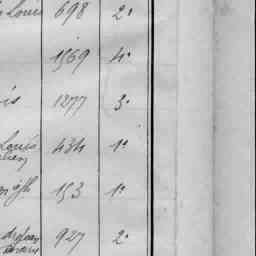 Louis 698 2°
1569 4°
is 1277 3°
Louis 434 1°
153 1°
927 2°